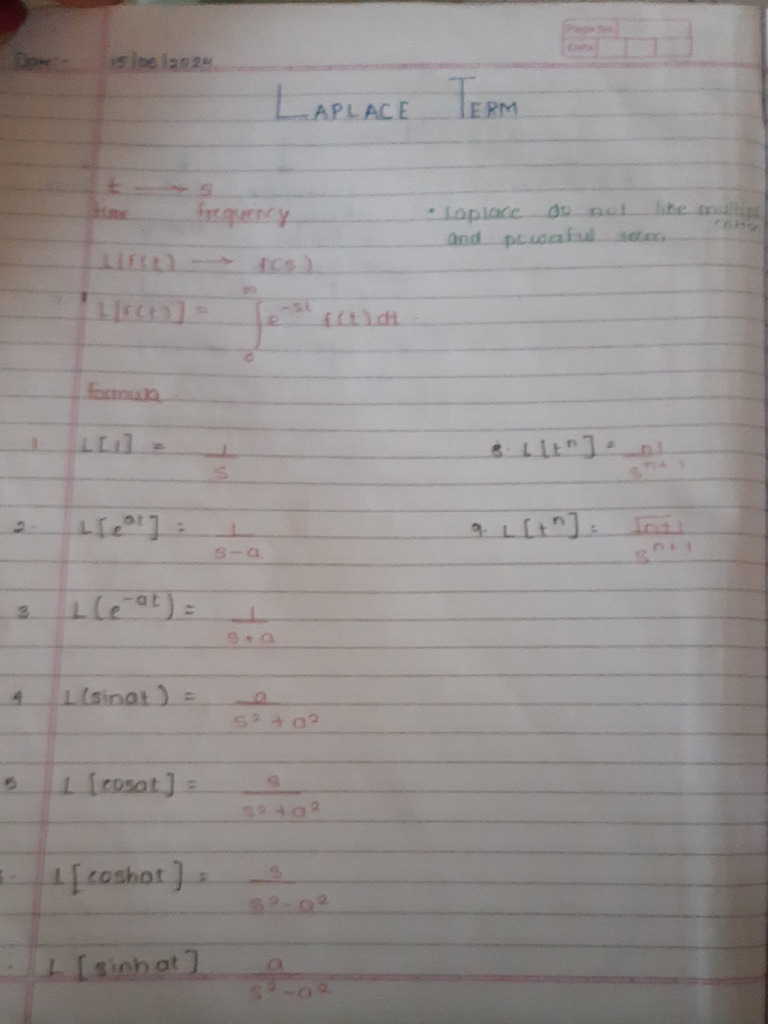 Page No.
Date
Date:- 15/06/2024
LAPLACE TERM
t → s
time frequency
• Laplace do not like
and powerful term
L(f(t) → f(s)
L[f(t)] = ∫₀^∞ e^-st f(t) dt
formula
1. L[1] = 1/s
2. L[e^at] = 1/s-a
3 L(e^-at) = 1/s+a
4 L(sinat) = a/s²+a²
5 L[cosat] = s/s²+a²
L[coshat] = s/s²-a²
L[sinhat] a/s²-a²
8. L[t^n] = n!/s^n+1
9. L[t^n] = ⌈n+1/s^n+1